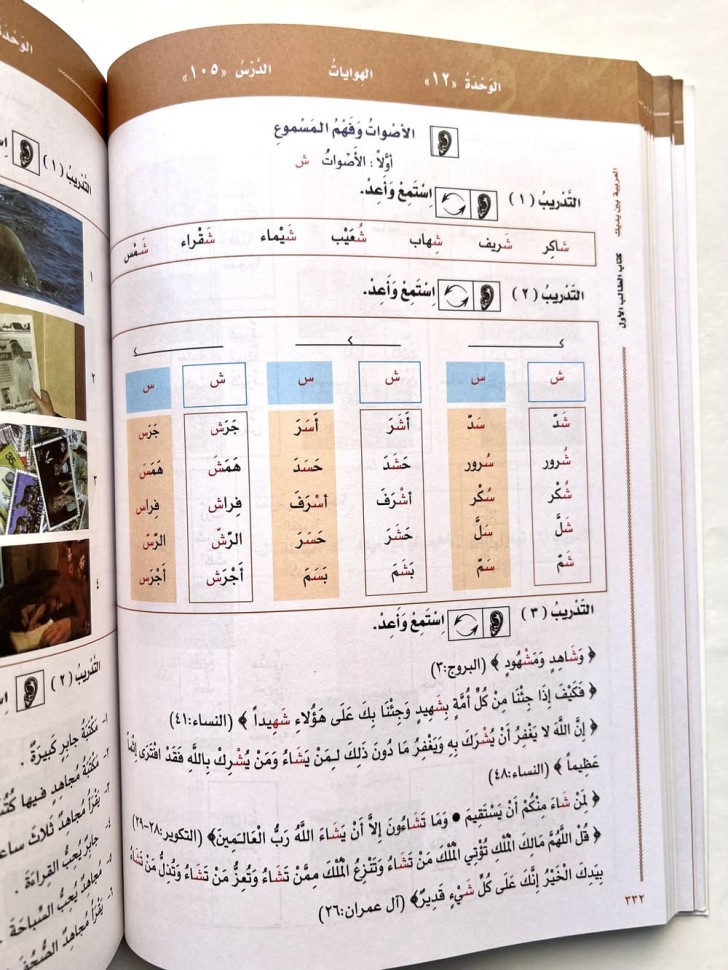 الوَحْدَةُ «١٢» الهِواياتُ الدَّرْسُ «١٠٥»
الأصْواتُ وَفَهْمُ المَسْموعِ
أوَّلاً : الأَصْواتُ ش
التَّدْريبُ ( ١ ) اِسْتَمِعْ وَأَعِدْ.
شاكِر شَريف شِهاب شُعَيْب شَيْماء شَقْراء شَمْس
التَّدْريبُ ( ٢ ) اِسْتَمِعْ وَأَعِدْ.
ش س ش س ش س
شَدَّ سَدَّ أَشَرَ أَسَرَ جَرَش جَرَس
شُرور سُرور حَشَدَ حَسَدَ هَمَشَ هَمَسَ
شُكْر سُكْر أشْرَفَ أسْرَفَ فِراش فِراس
شَلَّ سَلَّ حَشَرَ حَسَرَ الرّشّ الرّسّ
شَمّ سَمّ بَشَمَ بَسَمَ أَجْرَش أَجْرَس
التَّدْريبُ ( ٣ ) اِسْتَمِعْ وَأَعِدْ.
﴿ وَشَاهِدٍ وَمَشْهُودٍ ﴾ (البروج:٣)
﴿ فَكَيْفَ إِذَا جِئْنَا مِنْ كُلِّ أُمَّةٍ بِشَهِيدٍ وَجِئْنَا بِكَ عَلَى هَؤُلاءِ شَهِيداً ﴾ (النساء:٤١)
﴿ إِنَّ اللَّهَ لا يَغْفِرُ أَنْ يُشْرَكَ بِهِ وَيَغْفِرُ مَا دُونَ ذَلِكَ لِـمَنْ يَشَاءُ وَمَنْ يُشْرِكْ بِاللَّهِ فَقَدْ افْتَرَى إِثْماً
عَظِيماً ﴾ (النساء:٤٨)
﴿ لِمَنْ شَاءَ مِنْكُمْ أَنْ يَسْتَقِيمَ • وَمَا تَشَاءُونَ إِلاَّ أَنْ يَشَاءَ اللَّهُ رَبُّ الْعَالَـمِينَ﴾ (التكوير:٢٨-٢٩)
﴿ قُلْ اللَّهُمَّ مَالِكَ الْمُلْكِ تُؤْتِي الْمُلْكَ مَنْ تَشَاءُ وَتَنْزِعُ الْمُلْكَ مِمَّنْ تَشَاءُ وَتُعِزُّ مَنْ تَشَاءُ وَتُذِلُّ مَنْ تَشَاءُ
بِيَدِكَ الْخَيْرُ إِنَّكَ عَلَى كُلِّ شَيْءٍ قَدِيرٌ﴾ (آل عمران:٢٦)
٣٣٢
العربية بين يديك كتاب الطالب الأول
التَّدْريبُ ( ١ )
١
٢
٣
٤
التَّدْريبُ ( ٢ )
١- مَكْتَبَةُ جابِرٍ كَبيرَةٌ .
٢- مَكْتَبَةُ مُجاهِدٍ فيها
٣- يَقْرَأُ مُجاهِدٌ ثَلاثَ
٤- جابِرٌ يُحِبُّ القِراءَةَ .
مُجاهِدٌ يُحِبُّ السِّباحَةَ .
يَقْرَأُ مُجاهِدٌ